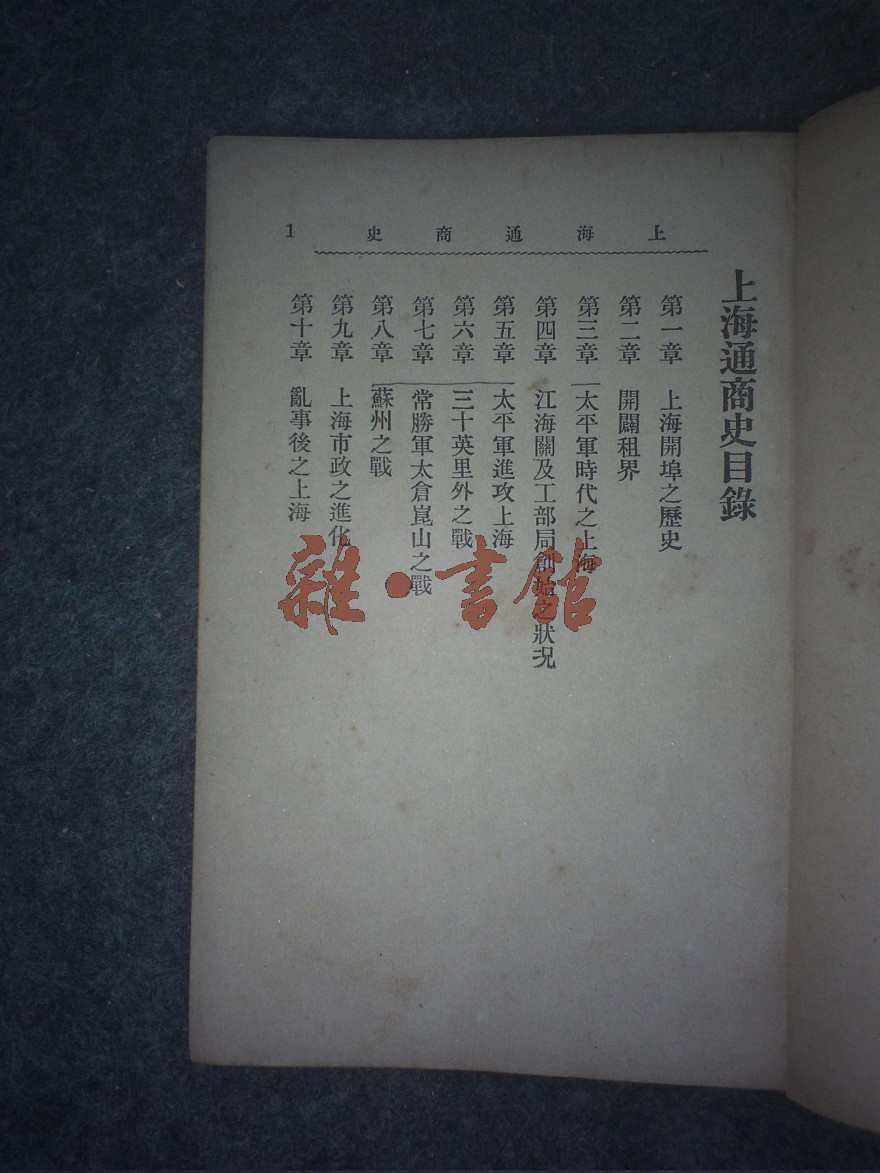 上海通商史
1
上海通商史目錄
第一章 上海開埠之歷史
第二章 開闢租界
第三章 太平軍時代之上海
第四章 江海關及工部局創始之狀況
第五章 太平軍進攻上海
第六章 三十英里外之戰
第七章 常勝軍太倉崑山之戰
第八章 蘇州之戰
第九章 上海市政之進化
第十章 亂事後之上海
雜·書館